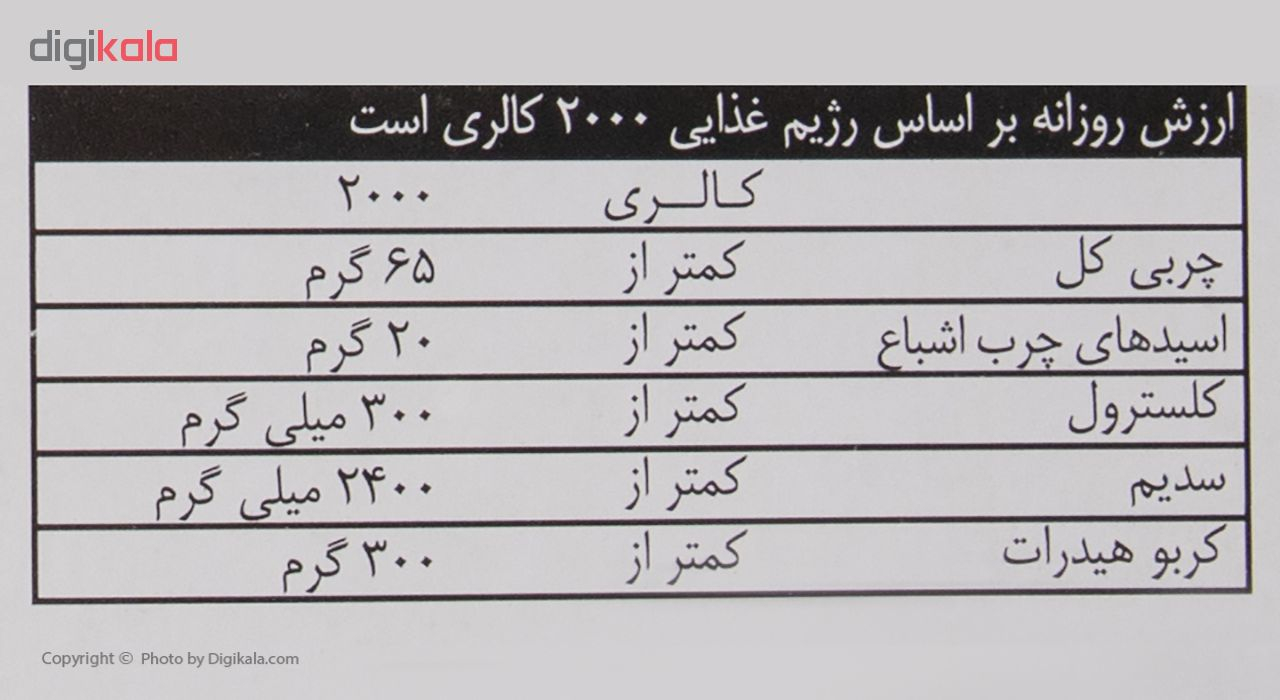 digikala
ارزش روزانه بر اساس رژیم غذایی ۲۰۰۰ کالری است
کـالـــری ۲۰۰۰
چربی کل کمتر از ۶۵ گرم
اسیدهای چرب اشباع کمتر از ۲۰ گرم
کلسترول کمتر از ۳۰۰ میلی گرم
سدیم کمتر از ۲۴۰۰ میلی گرم
کربو هیدرات کمتر از ۳۰۰ گرم
Copyright © Photo by Digikala.com